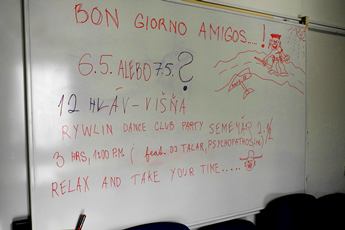 BON GIORNO AMIGOS....!
6.5. ALEBO 7.5. ?
12 HLÁV - VIŠŇA
RYWLIN DANCE CLUB PARTY SEMENÁR 2.
3 HRS, 12:00 P.M. ( feat. DJ TALAR, PSYCHOPATHOS
RELAX AND TAKE YOUR TIME.....